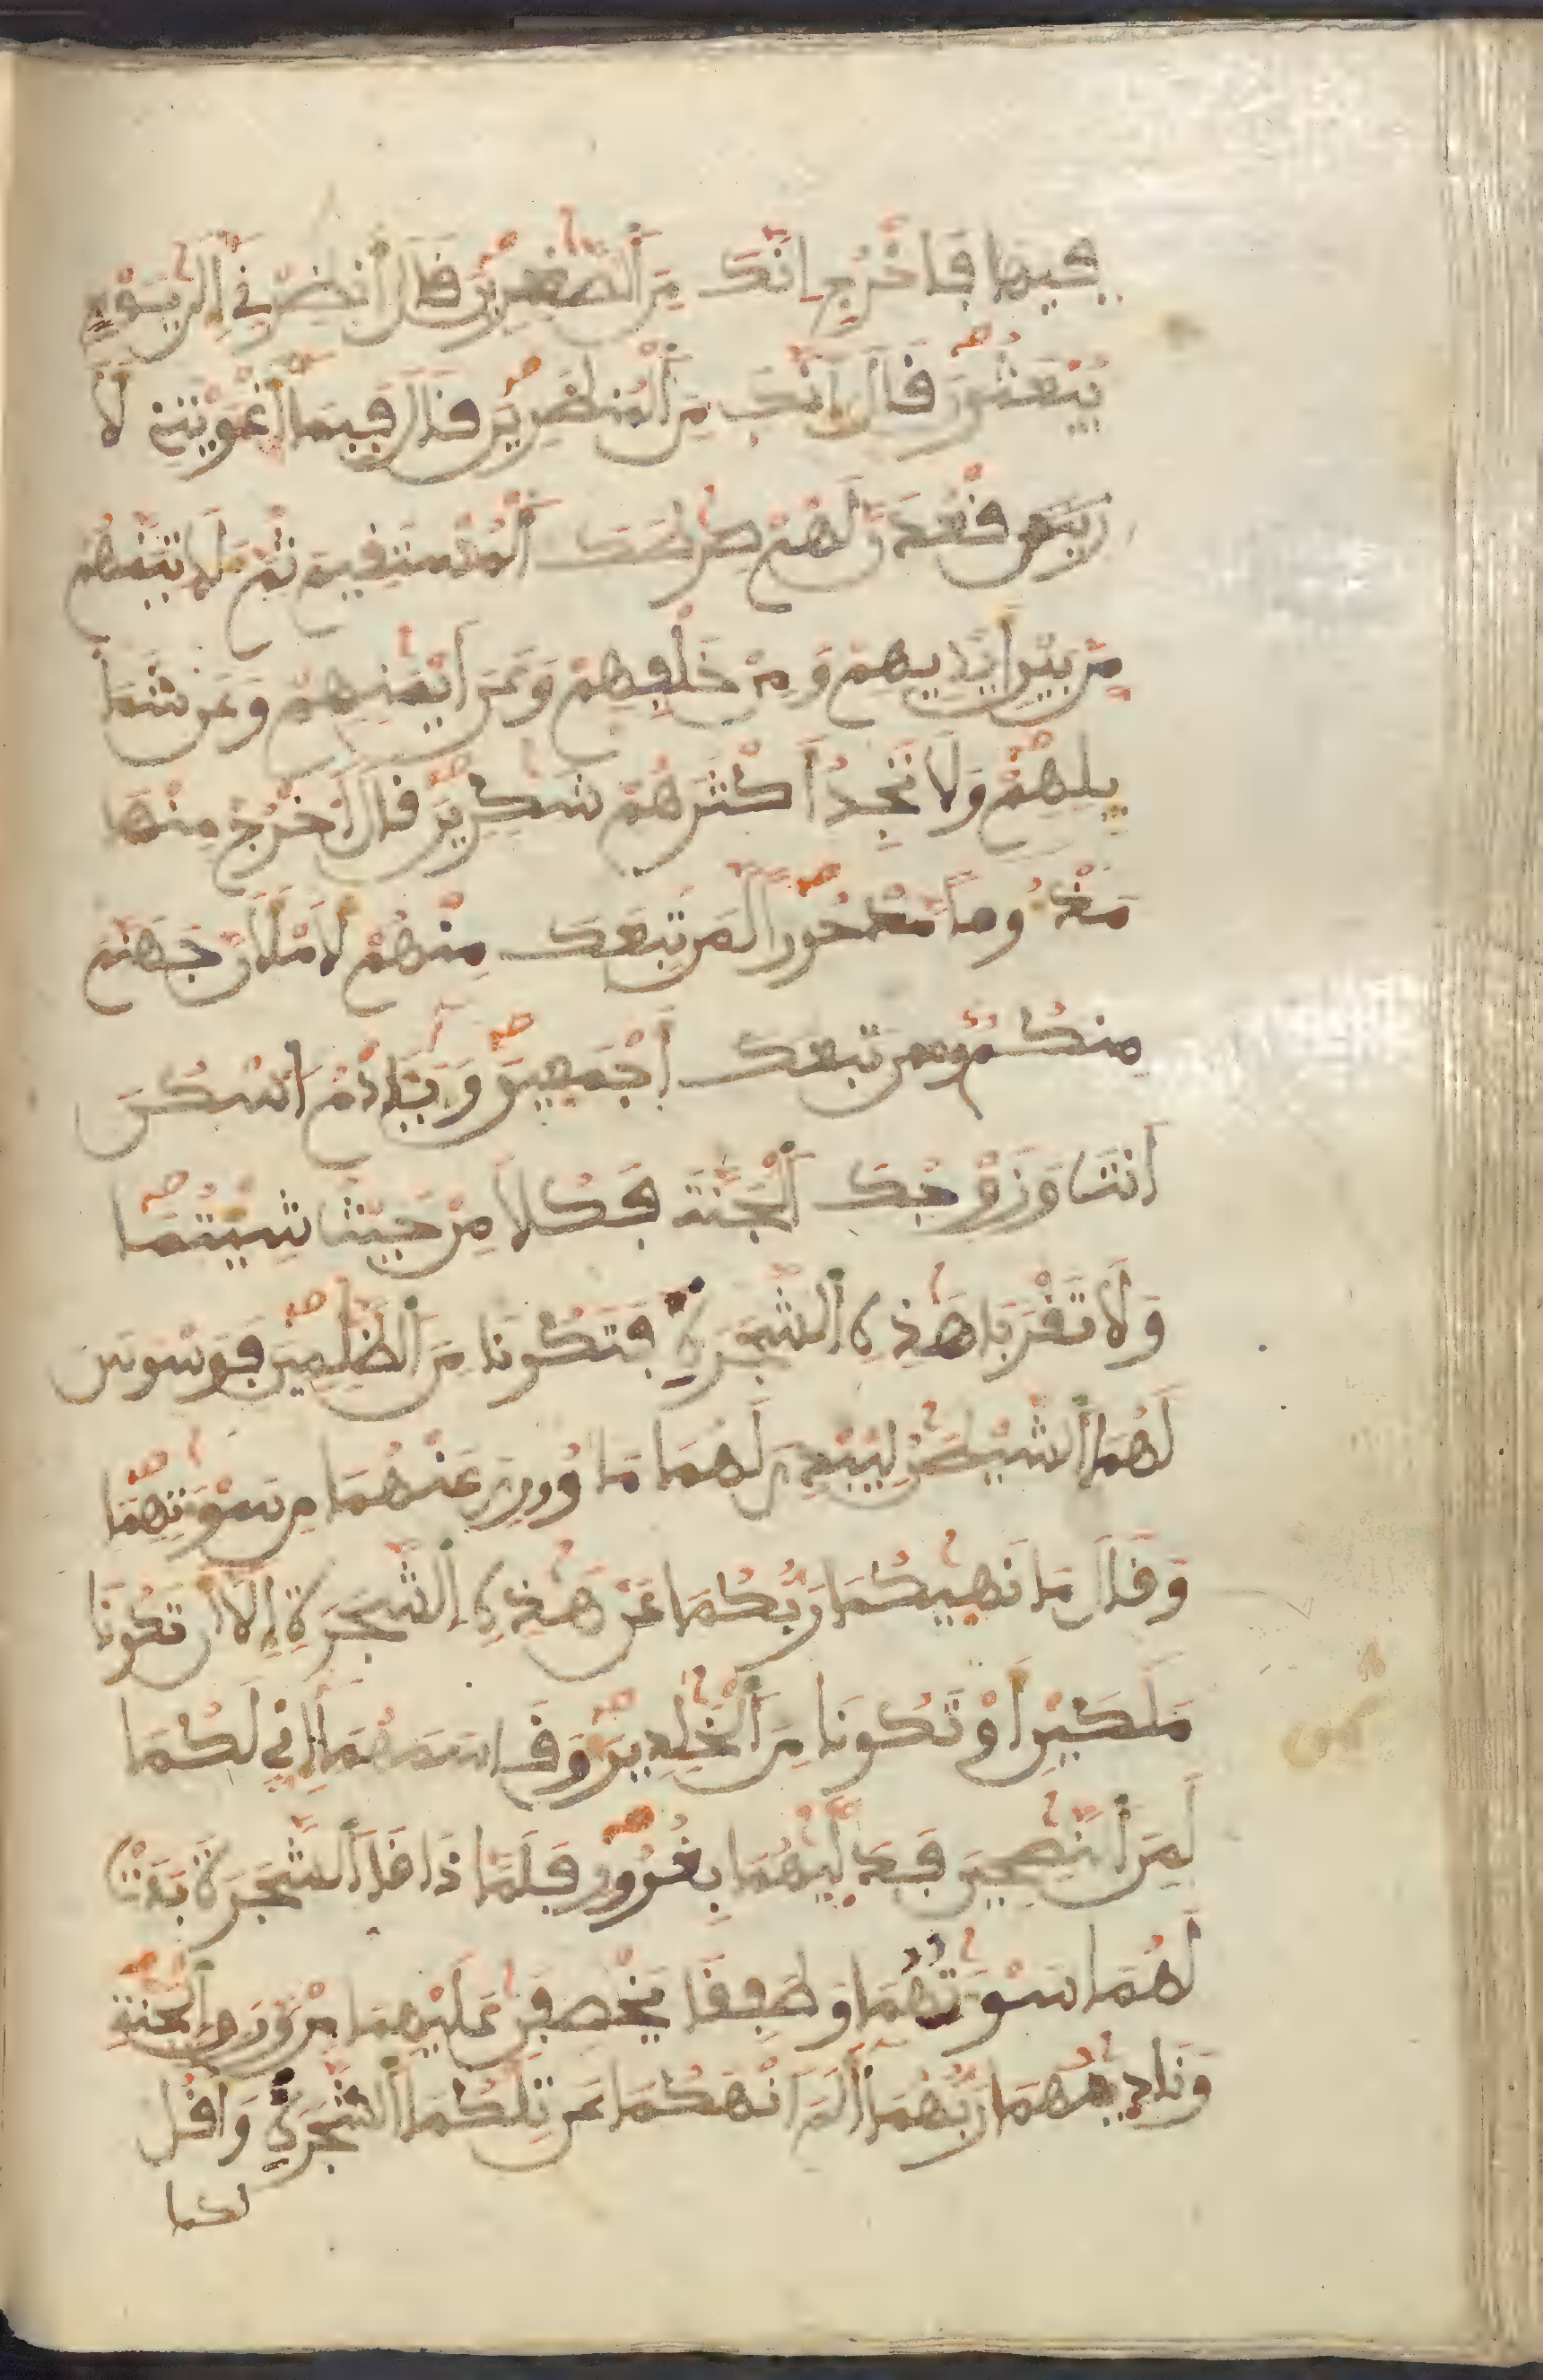 فيها فاخرج انك من الصغرين قال انظرني إلى يوم
يبعثون قال انك من المنظرين قال فبما أغويتني لا
قعدن لهم صرطك المستقيم ثم لاتينهم
من بين أيديهم ومن خلفهم وعن أيمنهم وعن شما
يلهم ولا تجد أكثرهم شكرين قال اخرج منها
مذءوما مدحورا لمن تبعك منهم لأملأن جهنم
منكم تبعك أجمعين ويادم اسكن
انت وزوجك الجنة فكلا من حيث شيتما
ولا تقربا هذه الشجرة فتكونا من الظلمين فوسوس
لهما الشيطن ليبدي لهما ما وري عنهما من سوتهما
وقال ما نهيكما ربكما عن هذه الشجرة إلا أن تكونا
ملكين أو تكونا من الخلدين وقاسمهما إني لكما
لمن النصحين فدليهما بغرور فلما ذاقا الشجرة بدت
لهما سوتهما وطفقا يخصفن عليهما من ورق الجنة
وناديهما ربهما ألم انهكما عن تلكما الشجرة واقل
لكما